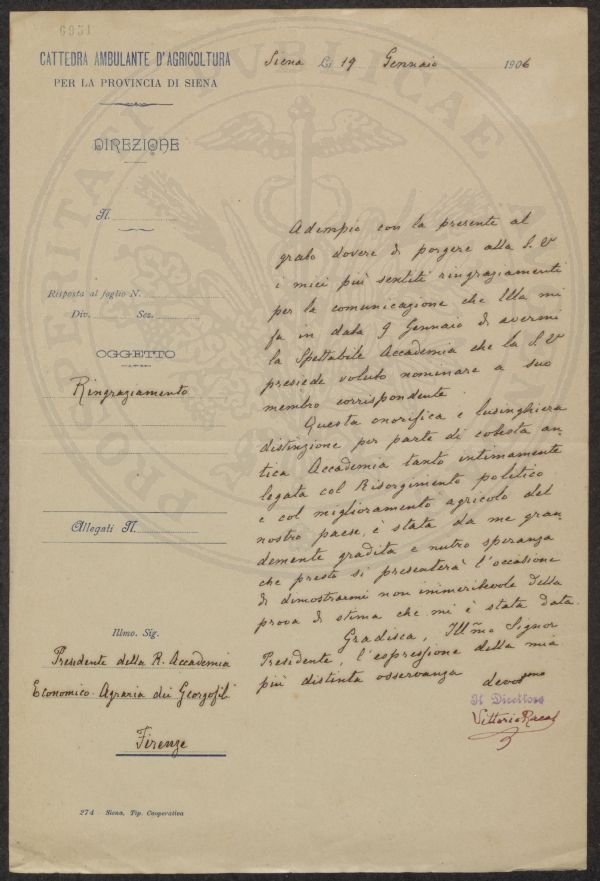 6951
CATTEDRA AMBULANTE D'AGRICOLTURA
PER LA PROVINCIA DI SIENA
DIREZIONE
N.
Risposta al foglio N.
Div. Sez.
OGGETTO
Ringraziamento
Allegati N.
Illmo. Sig.
Presidente della R. Accademia
Economico-Agraria dei Georgofili
Firenze
274 - Siena, Tip. Cooperativa
Siena Li 19 Gennaio 1906
Adempio con la presente al
grato dovere di porgere alla S. V
i miei più sentiti ringraziamenti
per la comunicazione che Ella mi
fa in data 9 Gennaio di avermi
la Spettabile Accademia che la S. V
presiede voluto nominare a suo
membro corrispondente.
Questa onorifica e lusinghiera
distinzione per parte di cotesta an-
tica Accademia tanto intimamente
legata col Risorgimento politico
e col miglioramento agricolo del
nostro paese, è stata da me gran-
demente gradita e nutro speranza
che presto si presenterà l'occasione
di dimostrarmi non immeritevole della
prova di stima che mi è stata data.
Gradisca, Illmo Signor
Presidente, l'espressione della mia
più distinta osservanza
devotmo
Il Direttore
Vittorio